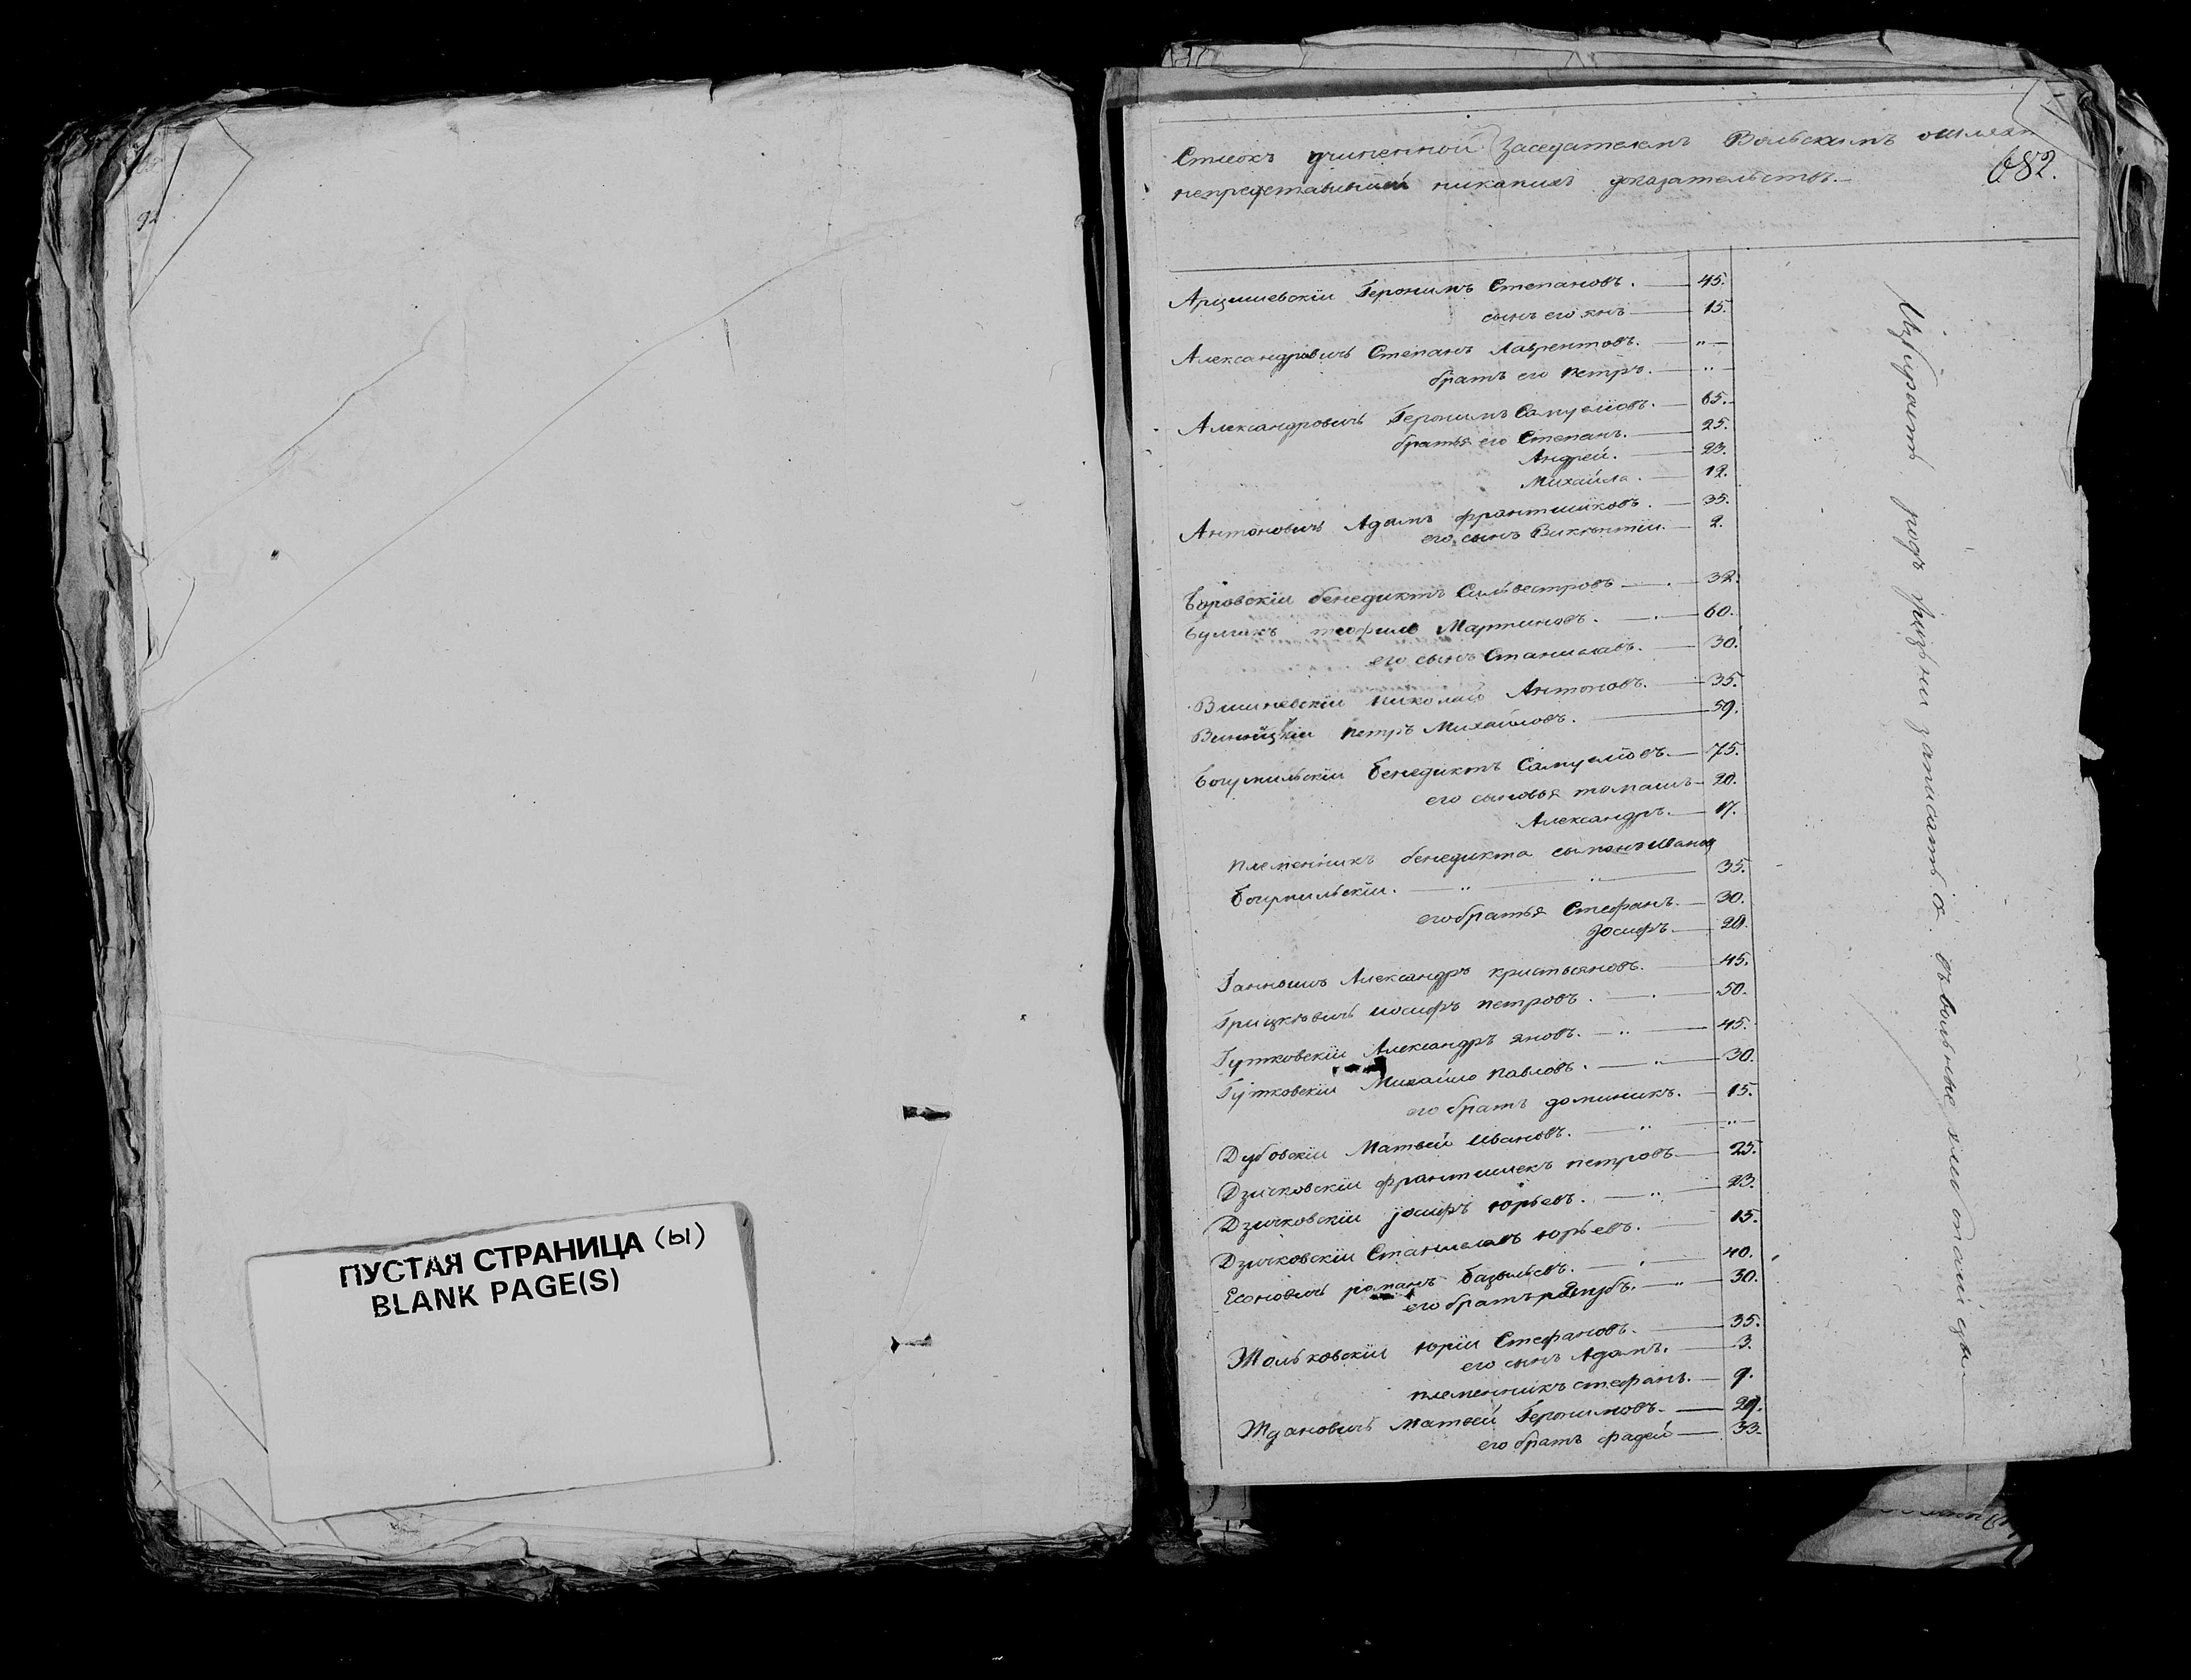 92
ПУСТАЯ СТРАНИЦА (Ы)
BLANK PAGE(S)
Списокъ учиненной Заседателемъ Вольскимъ ошляхт
непредставившей никакихъ доказательствъ.—
682.
Арцишевскій Геронимъ Степановъ. 45.
сынъ его янъ 15.
Александровичъ Степанъ Лаврентовъ. „
братъ его петръ. „
Александровичъ Геронимъ Самуеліовъ. 65.
братья его Степанъ. 25.
Андрей. 23.
Михайла. 12.
Антоновичъ Адамъ франтишковъ. 35.
его сынъ Викентій. 2.
Боровскій бенедиктъ Сильвестровъ 32.
Булгакъ теофилъ Мартиновъ. 60.
его сынъ Станиславъ. 30.
Вишневскій николай Антоновъ. 35.
петръ Михайловъ. 59.
Бенедиктъ Самуеліовъ. 75.
его сыновья томашъ 20.
Александръ. 17.
племенникъ бенедикта
35.
его братья Стефанъ. 30.
Іосифъ. 20.
Александръ кристьяновъ. 45.
Грицкевичъ иосифъ петровъ. 50.
Гутковскій Александръ яновъ. „ 45.
Гутковскій Михайло павловъ. „ 30.
его братъ доминикъ. 15.
Дубовскій Матвей ивановъ. „ „
Дзичковскій франтишекъ петровъ 25.
Дзичковскій іосифъ юрьевъ. „ 23.
Дзичковскій Станиславъ юрьевъ. 15.
романъ базыльевъ. 40.
его братъ 30.
Жольковскій юрій Стефановъ. 35.
его сынъ Адамъ. 3.
племенникъ стефанъ. 9.
Ждановичъ матвей Геронимовъ. 29.
его братъ фадей 33.